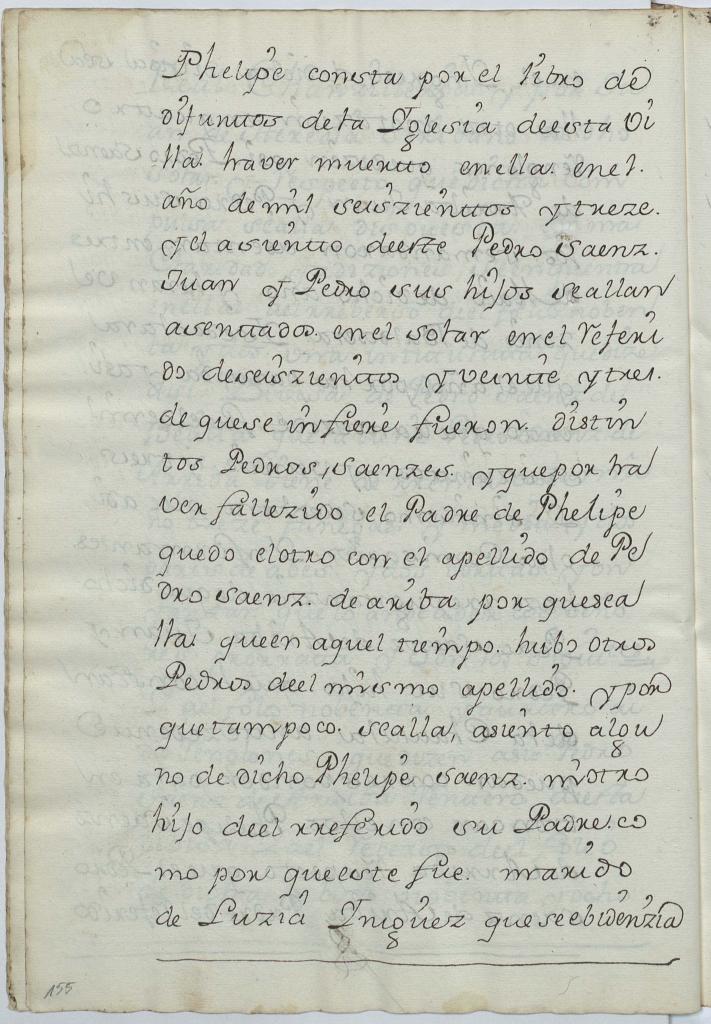 Phelipe consta por el libro de
difunttos de la Yglesia de esta Vi
lla. haver muertto en ella. en el.
año de mil seisziènttos y treze.
y el asientto de este Pedro Saenz.
Juan y Pedro sus hijos se allan
asenttados en el solar en el referi
do de seiszienttos y veintte y tres.
de que se infiere fueron. distin
tos Pedros, Saenzes. y que por ha
ver fallezido el Padre de Phelipe
quedo el otro con el apellido de Pe
dro Saenz. de ariba por que se a
lla. que en aquel tiempo. hubo otros
Pedros de el mismo apellido. y por
que tampoco. se alla, asiento algu
no de dicho Phelipe Saenz. ni otro
hijo de el rreferido su Padre. co
mo por que este fue. marido
de Luzia Yniguez que se ebidenzia
155